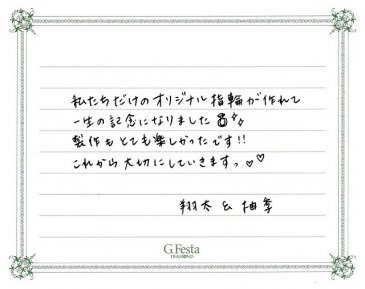 私たちだけのオリジナル指輪が作れて
一生の記念になりました💍✨
製作もとても楽しかったです!!
これから大切にしていきますっ♡♡
翔太 & 柚季
G.Festa
DIAMOND